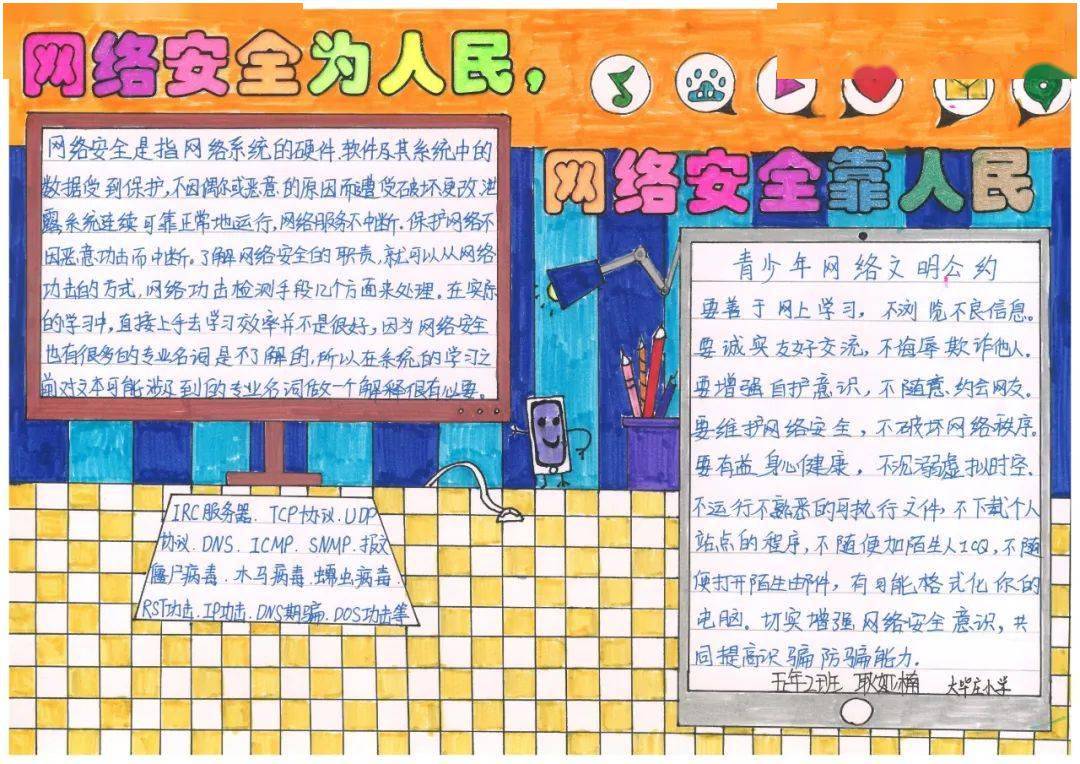 网络安全为人民，
网络安全靠人民
网络安全是指网络系统的硬件、软件及其系统中的
数据受到保护，不因偶尔或恶意的原因而遭受破坏更改泄
露，系统连续可靠正常地运行，网络服务不中断。保护网络不
因恶意功击而中断。了解网络安全的职责，就可以从网络
功击的方式，网络功击检测手段几个方面来处理。在实际
的学习中，直接上手去学习效率并不是很好，因为网络安全
也有很多的专业名词是不了解的，所以在系统的学习之
前对文本可能涉及到的专业名词做一个解释很有必要。
IRC服务器、TCP协议、UDP
协议、DNS、ICMP、SNMP、报文
僵尸病毒、木马病毒、蠕虫病毒、
RST功击、IP功击、DNS期骗、DOS功击等
青少年网络文明公约
要善于网上学习，不浏览不良信息。
要诚实友好交流，不侮辱欺诈他人。
要增强自护意识，不随意约会网友。
要维护网络安全，不破坏网络秩序。
要有益身心健康，不沉溺虚拟时空。
不运行不熟悉的可执行文件，不下载个人
站点的程序，不随便加陌生人ICQ，不随
便打开陌生邮件，有可能格式化你的
电脑。切实增强网络安全意识，共
同提高识骗防骗能力。
五年2班 耿如楠 大毕庄小学